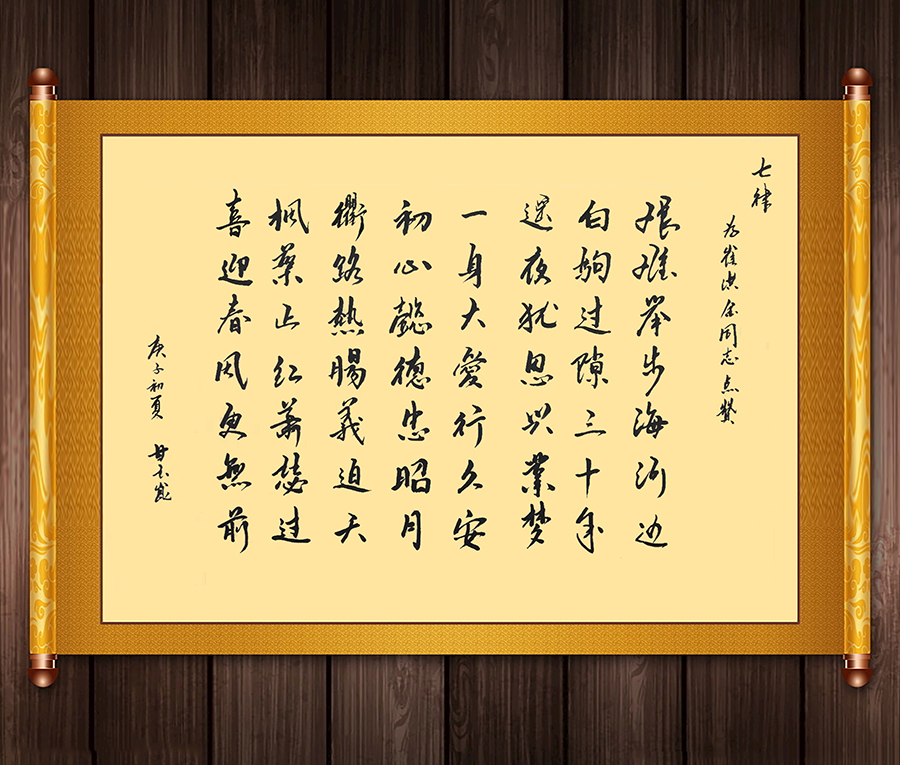 七律
为崔洪同志点赞
艰难举步海河边
白驹过隙三十年
遥夜犹思兴業梦
一身大愛行久安
初心懿德忠昭月
衢路熱腸義迫天
枫葉正红萧瑟过
喜迎春风更無前
庚子初夏